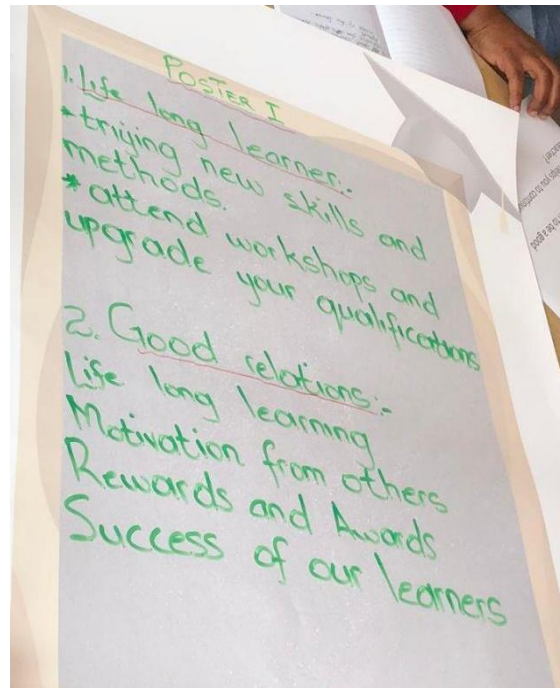 POSTER I
1. Life long learner:-
*triying new skills and
methods.
*attend workshops and
upgrade your qualifications
2. Good relations:-
Life long learning
Motivation from others
Rewards and Awards
Success of our learners